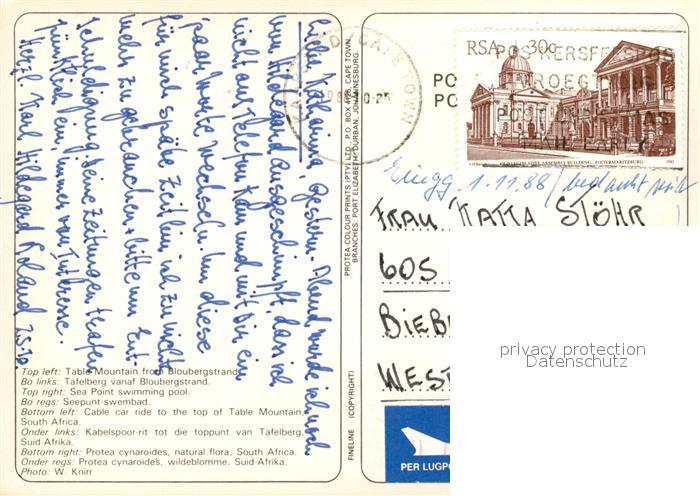 Liebe Katharina, Gestern Abend wurde ich noch
von Hildegard ausgeschimpft, dass ich
nicht ans Telefon kam und mit Dir ein
paar Worte wechseln. Um diese
für mich späte Zeit bin ich zu nichts
mehr zu gebrauchen + bitte um Ent-
schuldigung. Deine Zeitungen treffen
pünktlich ein, immer von Interesse.
Herzl. Karl Hildegard Roland 25.10.
Top left: Table Mountain from Bloubergstrand.
Bo links: Tafelberg vanaf Bloubergstrand.
Top right: Sea Point swimming pool.
Bo regs: Seepunt-swembad.
Bottom left: Cable car ride to the top of Table Mountain,
South Africa.
Onder links: Kabelspoor-rit tot die toppunt van Tafelberg,
Suid-Afrika.
Bottom right: Protea cynaroides, natural flora, South Africa.
Onder regs: Protea cynaroides, wildeblomme, Suid-Afrika.
Photo: W. Knirr
PROTEA COLOUR PRINTS (PTY) LTD. P.O. BOX 4178, CAPE TOWN.
BRANCHES: PORT ELIZABETH, DURBAN, JOHANNESBURG.
FINELINE (COPYRIGHT)
KAAPSTAD / CAPE TOWN
RSA 30c
OLD LEGISLATIVE ASSEMBLY BUILDING, PIETERMARITZBURG
1982
POS KERSFEES POS
VROEG
PO
PO
Eingg. 1.11.88 / bedankt
FRAU KATIA STÖHR
605
BIEB
WEST
PER LUGPO
privacy protection
Datenschutz